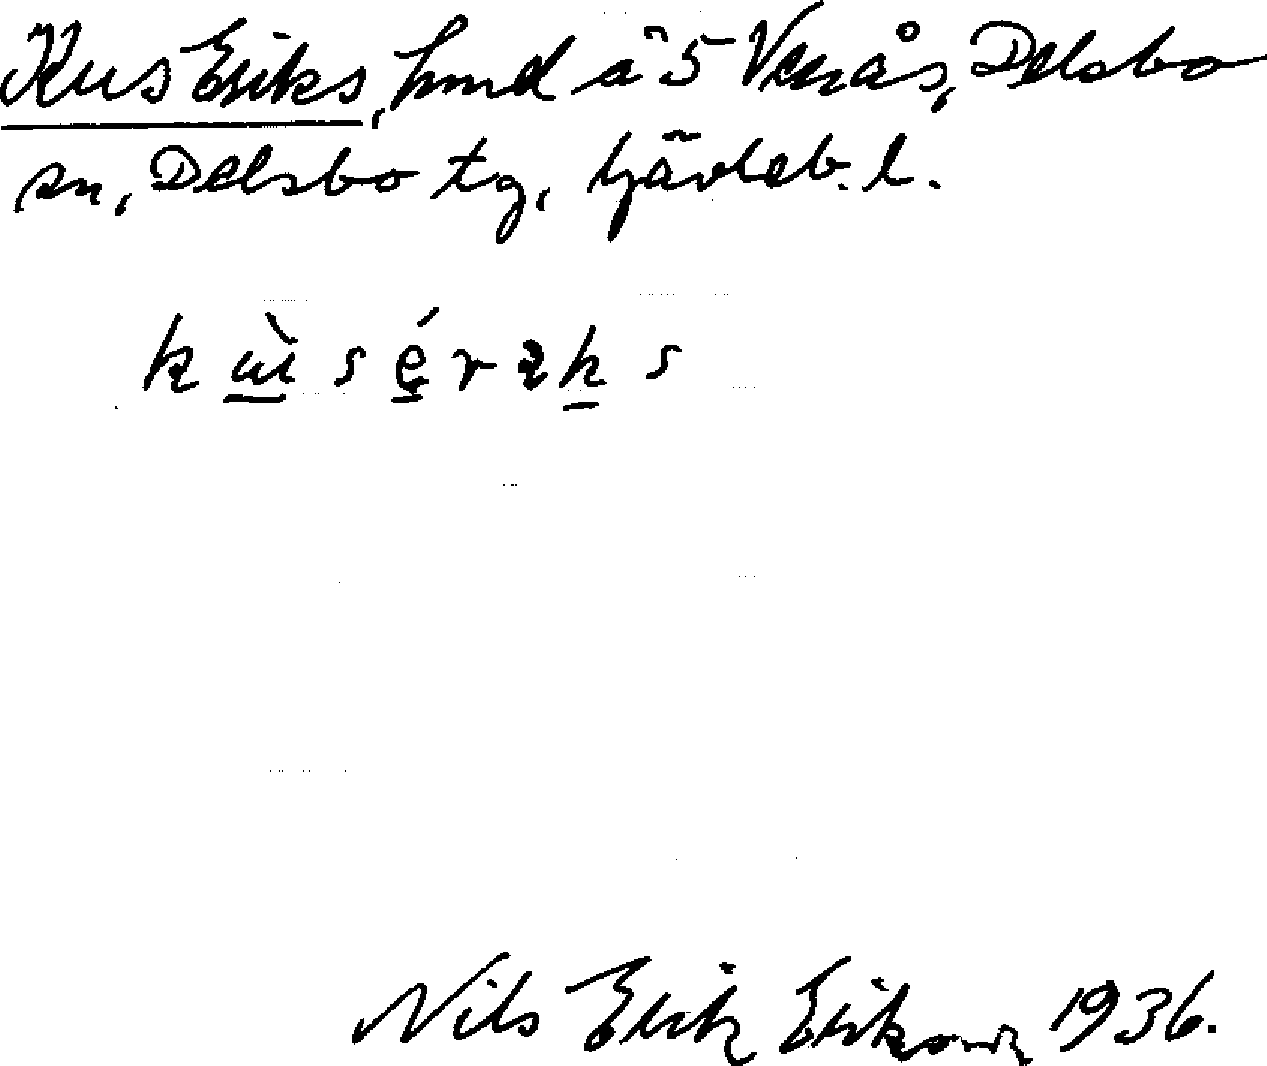 Kus Eriks, hmd å 5 Venås, Delsbo
sn, Delsbo tg, Gävleb. l.
k ù s é r ı k s
Nils Erik Erikson 1936.